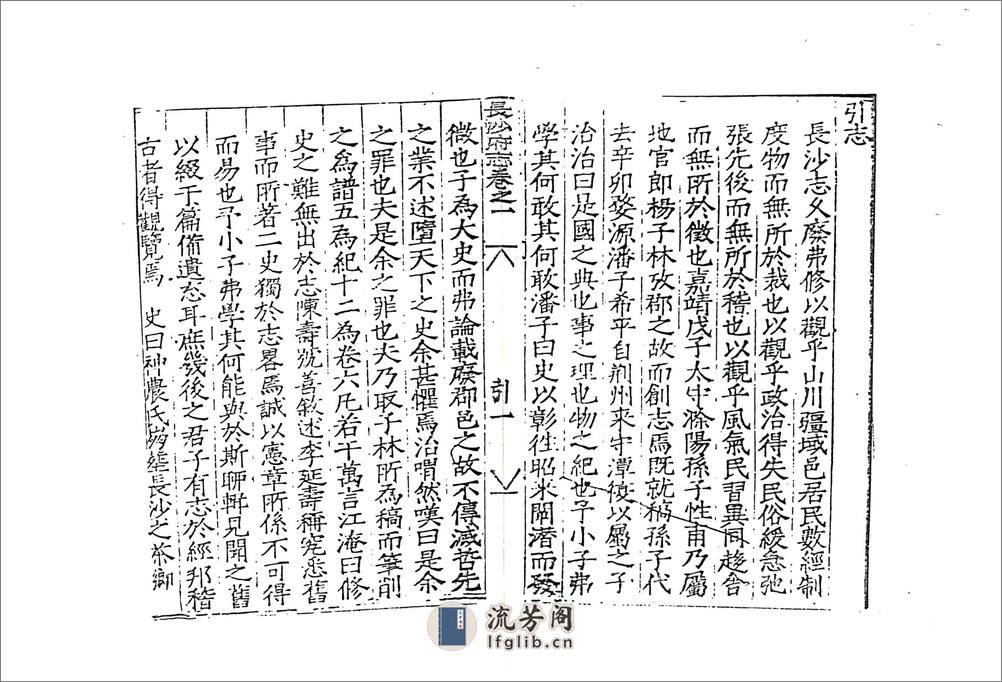 引志
長沙志久廢弗修以觀乎山川疆域邑居民數經制
度物而無所於裁也以觀乎政治得失民俗緩急弛
張先後而無所於稽也以觀乎風氣民習異同趍舍
而無所於徵也嘉靖戊子太守滁陽孫子性甫乃屬
地官郎楊子林攷郡之故而創志焉既就稿孫子代
去辛卯婺源潘子希平自荆州来守潭復以屬之子
治治曰是國之典也事之理也物之紀也予小子弗
學其何敢其何敢潘子曰史以彰徃昭来闡潜而發
長沙府志卷之一
引一
微也子為大史而弗論載廢郡邑之故不傳滅哲先
之業不述墮天下之史余甚懼焉治喟然嘆曰是余
之罪也夫是余之罪也夫乃取子林所為稿而筆削
之為譜五為紀十二為卷六凡若干萬言江淹曰修
史之難無出於志陳壽號善敘述李延壽稱究悉舊
事而所著二史獨於志畧焉誠以憲章所係不可得
而易也予小子弗學其何能與於斯聊輯見聞之舊
以綴于篇備遺忘耳庶幾後之君子有志於經邦稽
古者得觀覽焉 史曰神農氏崩塟長沙之茶鄉
流芳阁
lfglib.cn